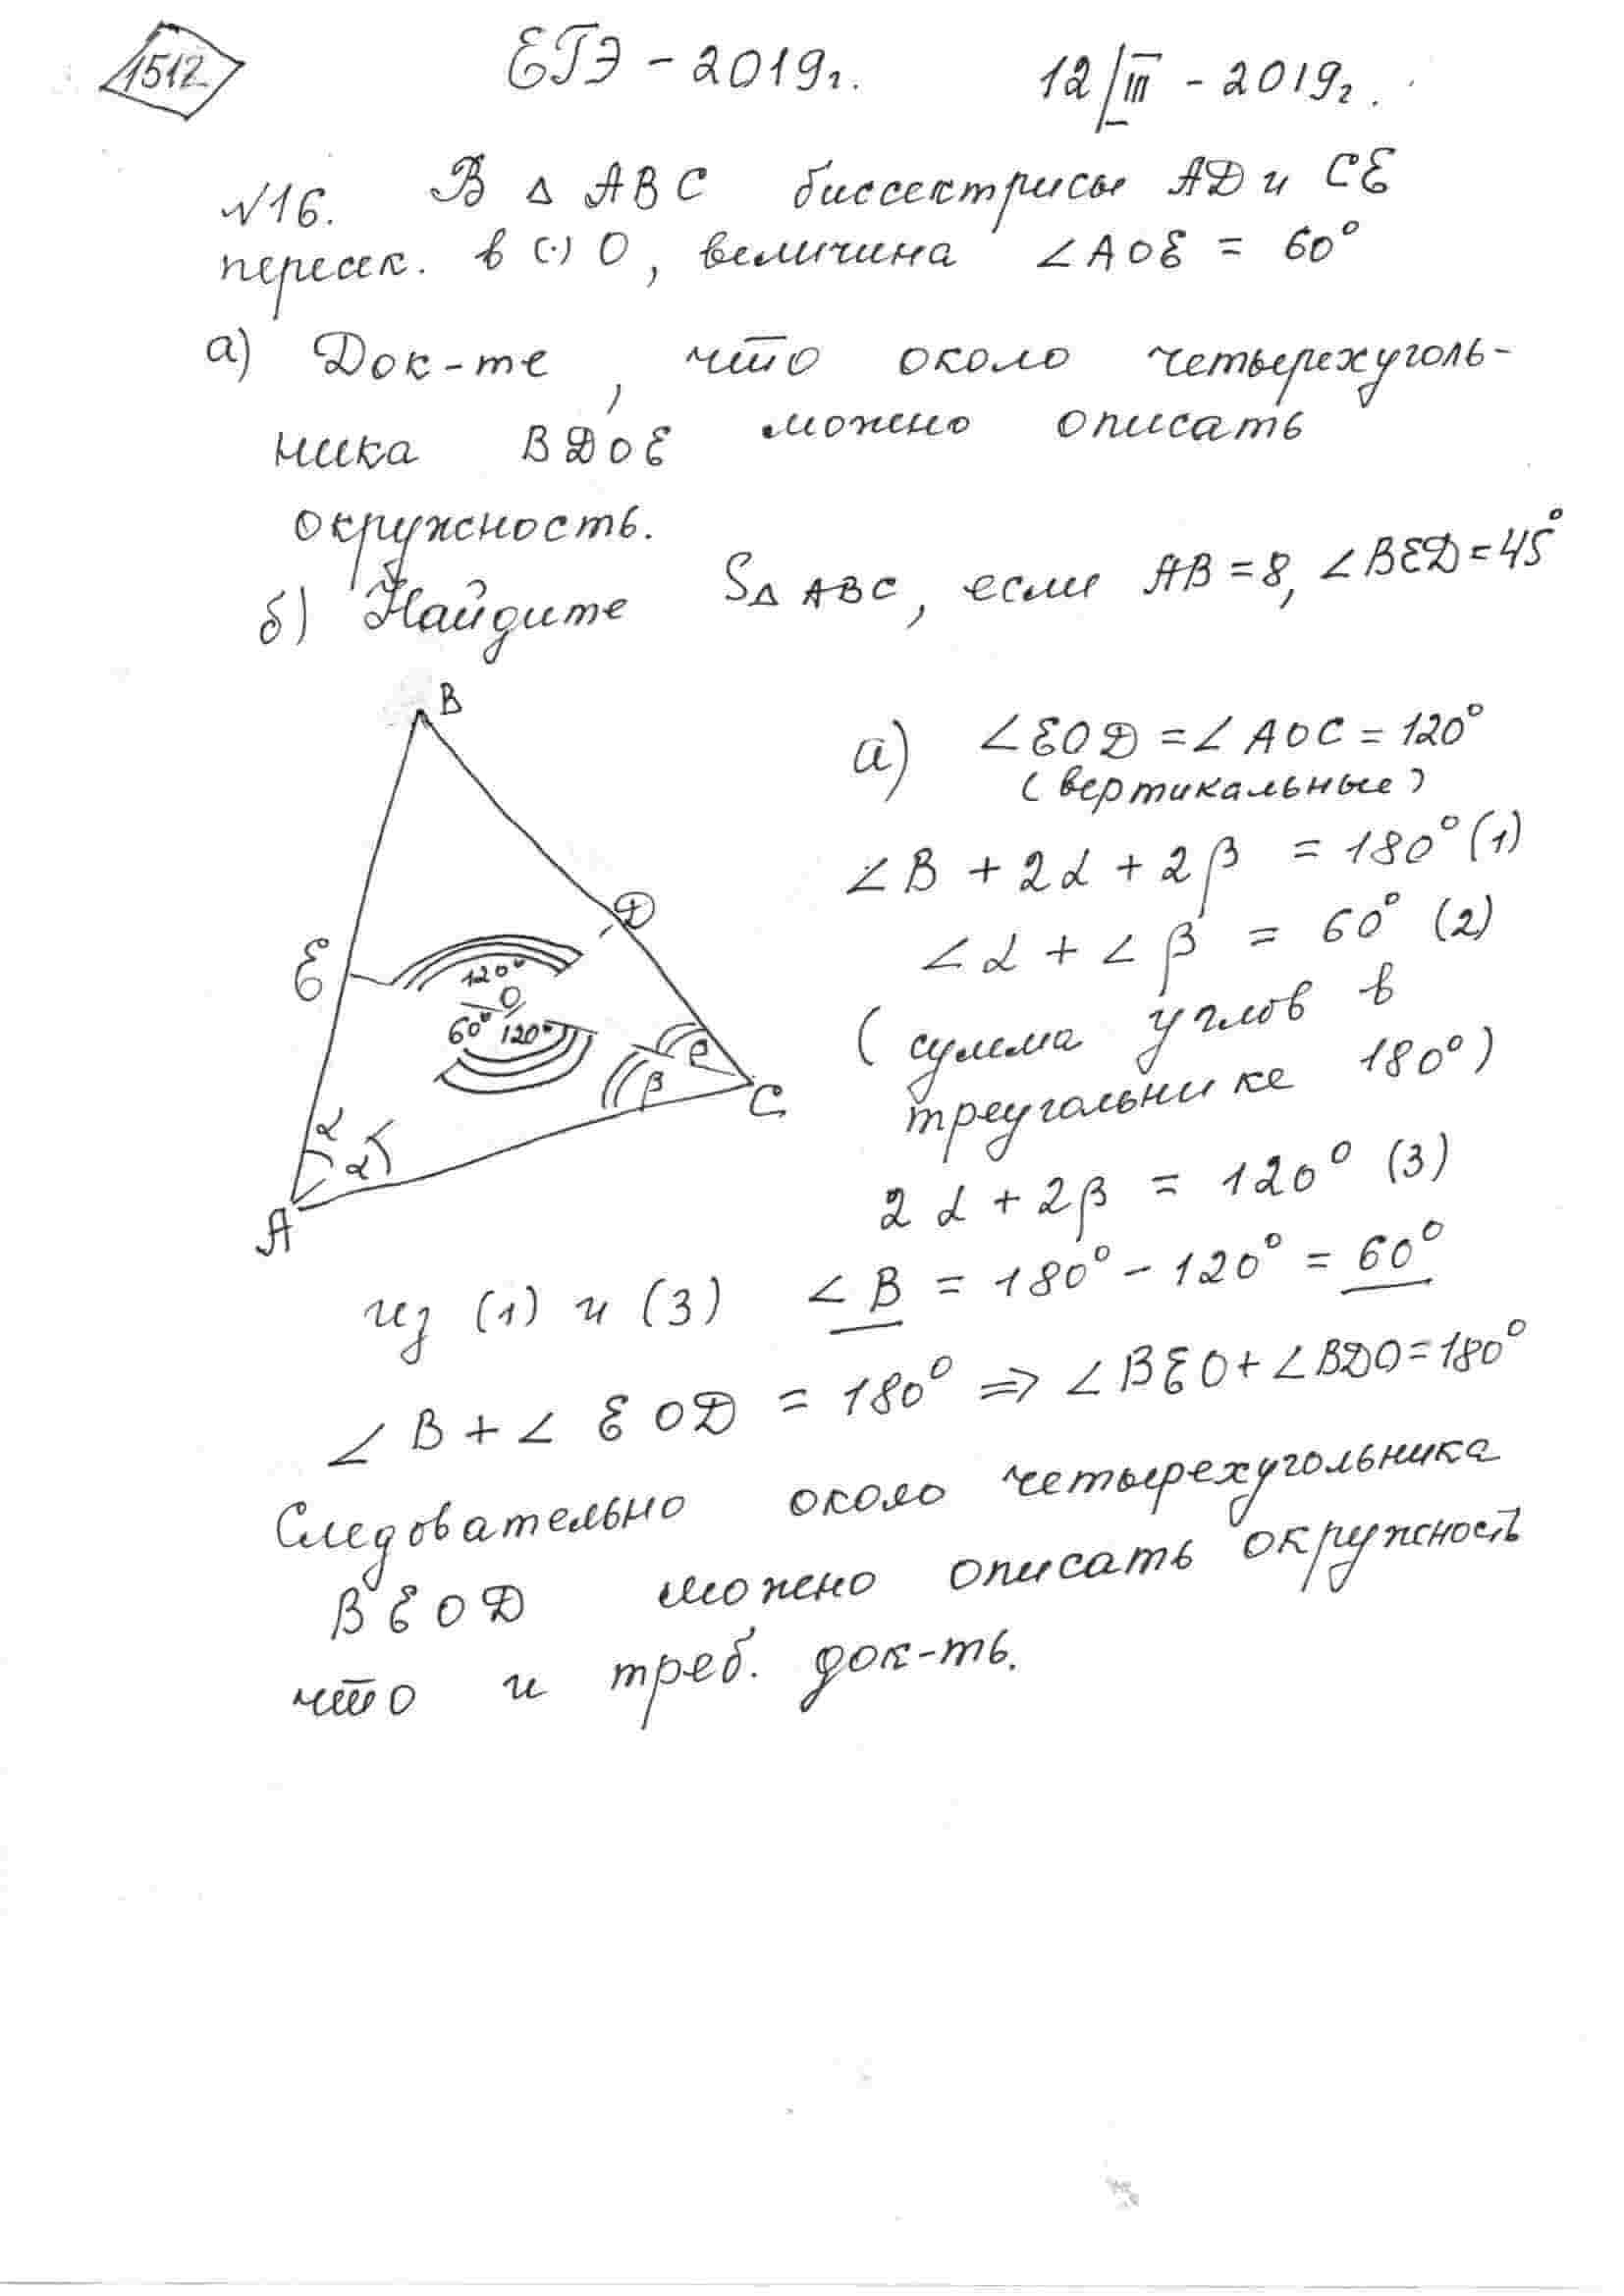 1512
ЕГЭ - 2019г.
12/III - 2019г.
№16. В Δ АВС биссектрисы АД и СЕ
пересек. в (·) О, величина ∠АОЕ = 60°
а) Док-те, что около четырехуголь-
ника ВДОЕ можно описать
окружность.
б) Найдите SΔ АВС, если АВ = 8, ∠ВЕД = 45°
В
Д
Е
120°
О
60° 120°
β
β
С
α
α
А
а) ∠ЕОД = ∠ АОС = 120°
(вертикальные)
∠В + 2α + 2β = 180° (1)
∠α + ∠β = 60° (2)
(сумма углов в
треугольнике 180°)
2α + 2β = 120° (3)
из (1) и (3) ∠В = 180° - 120° = 60°
∠В + ∠ЕОД = 180° ⇒ ∠ВЕО + ∠ВДО = 180°
Следовательно около четырехугольника
ВЕОД можно описать окружность
что и треб. док-ть.